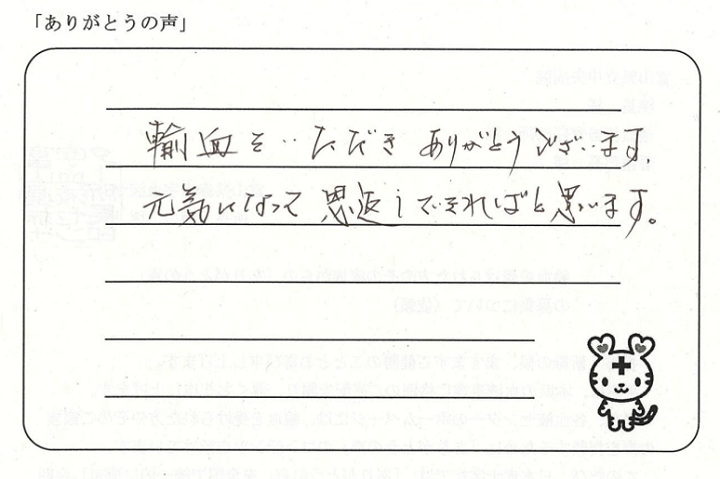 「ありがとうの声」
輸血をいただき ありがとうございます。
元気になって 恩返しできればと思います。